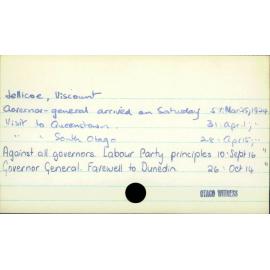 Jellicoe, Viscount
Governor-general arrived on Saturday 57: Mar. 25, 1924
Visit to Queenstown. 31: April, "
" " South Otago 28: Apr 15, "
Against all governors. Labour Party principles 10: Sept 16 "
Governor General. Farewell to Dunedin. 26: Oct 14 "
OTAGO WITNESS